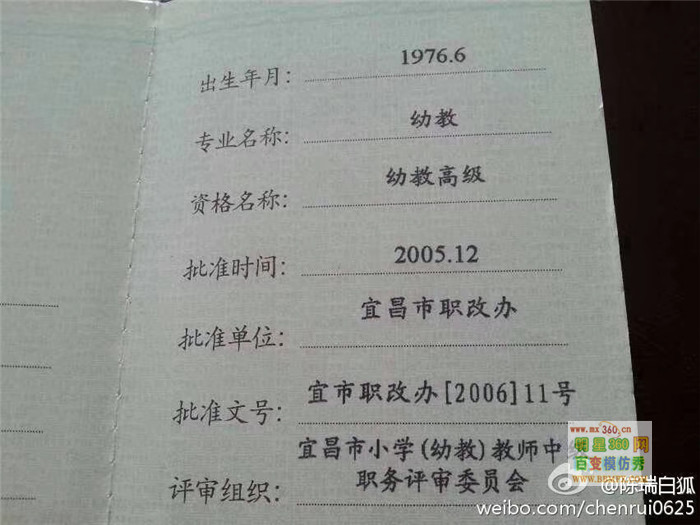 出生年月: 1976.6
专业名称: 幼教
资格名称: 幼教高级
批准时间: 2005.12
批准单位: 宜昌市职改办
批准文号: 宜市职改办[2006]11号
宜昌市小学(幼教)教师中
评审组织: 职务评审委员会
www.mx360.cn
明星360网
百变模仿秀
@陈瑞白狐
weibo.com/chenrui0625